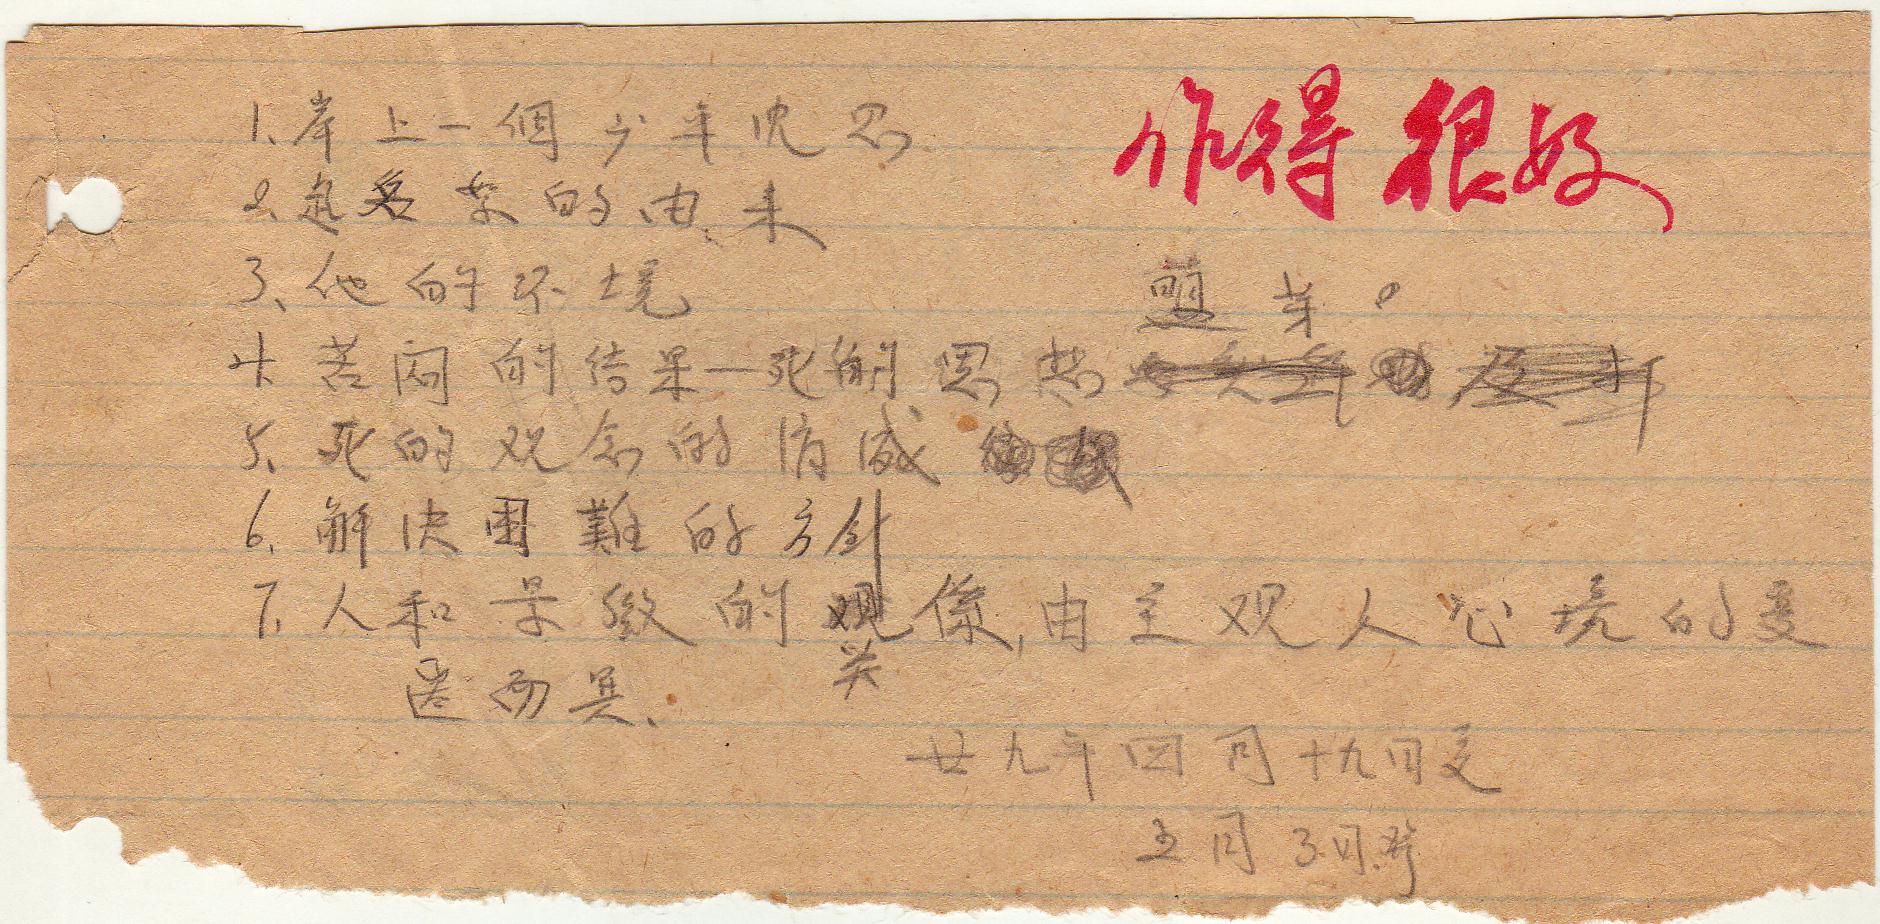 作得很好
1、岸上一個少年沈思
2、起名案的由、来
3、他的环境
萌芽。
4、苦闷的结果—死的思想
5、死的观念的消滅
6、解决困難的方針
7、人和景緻的係,由主观人心境的变
关
迁而異、
廿九年四月十九日交
五月3日發